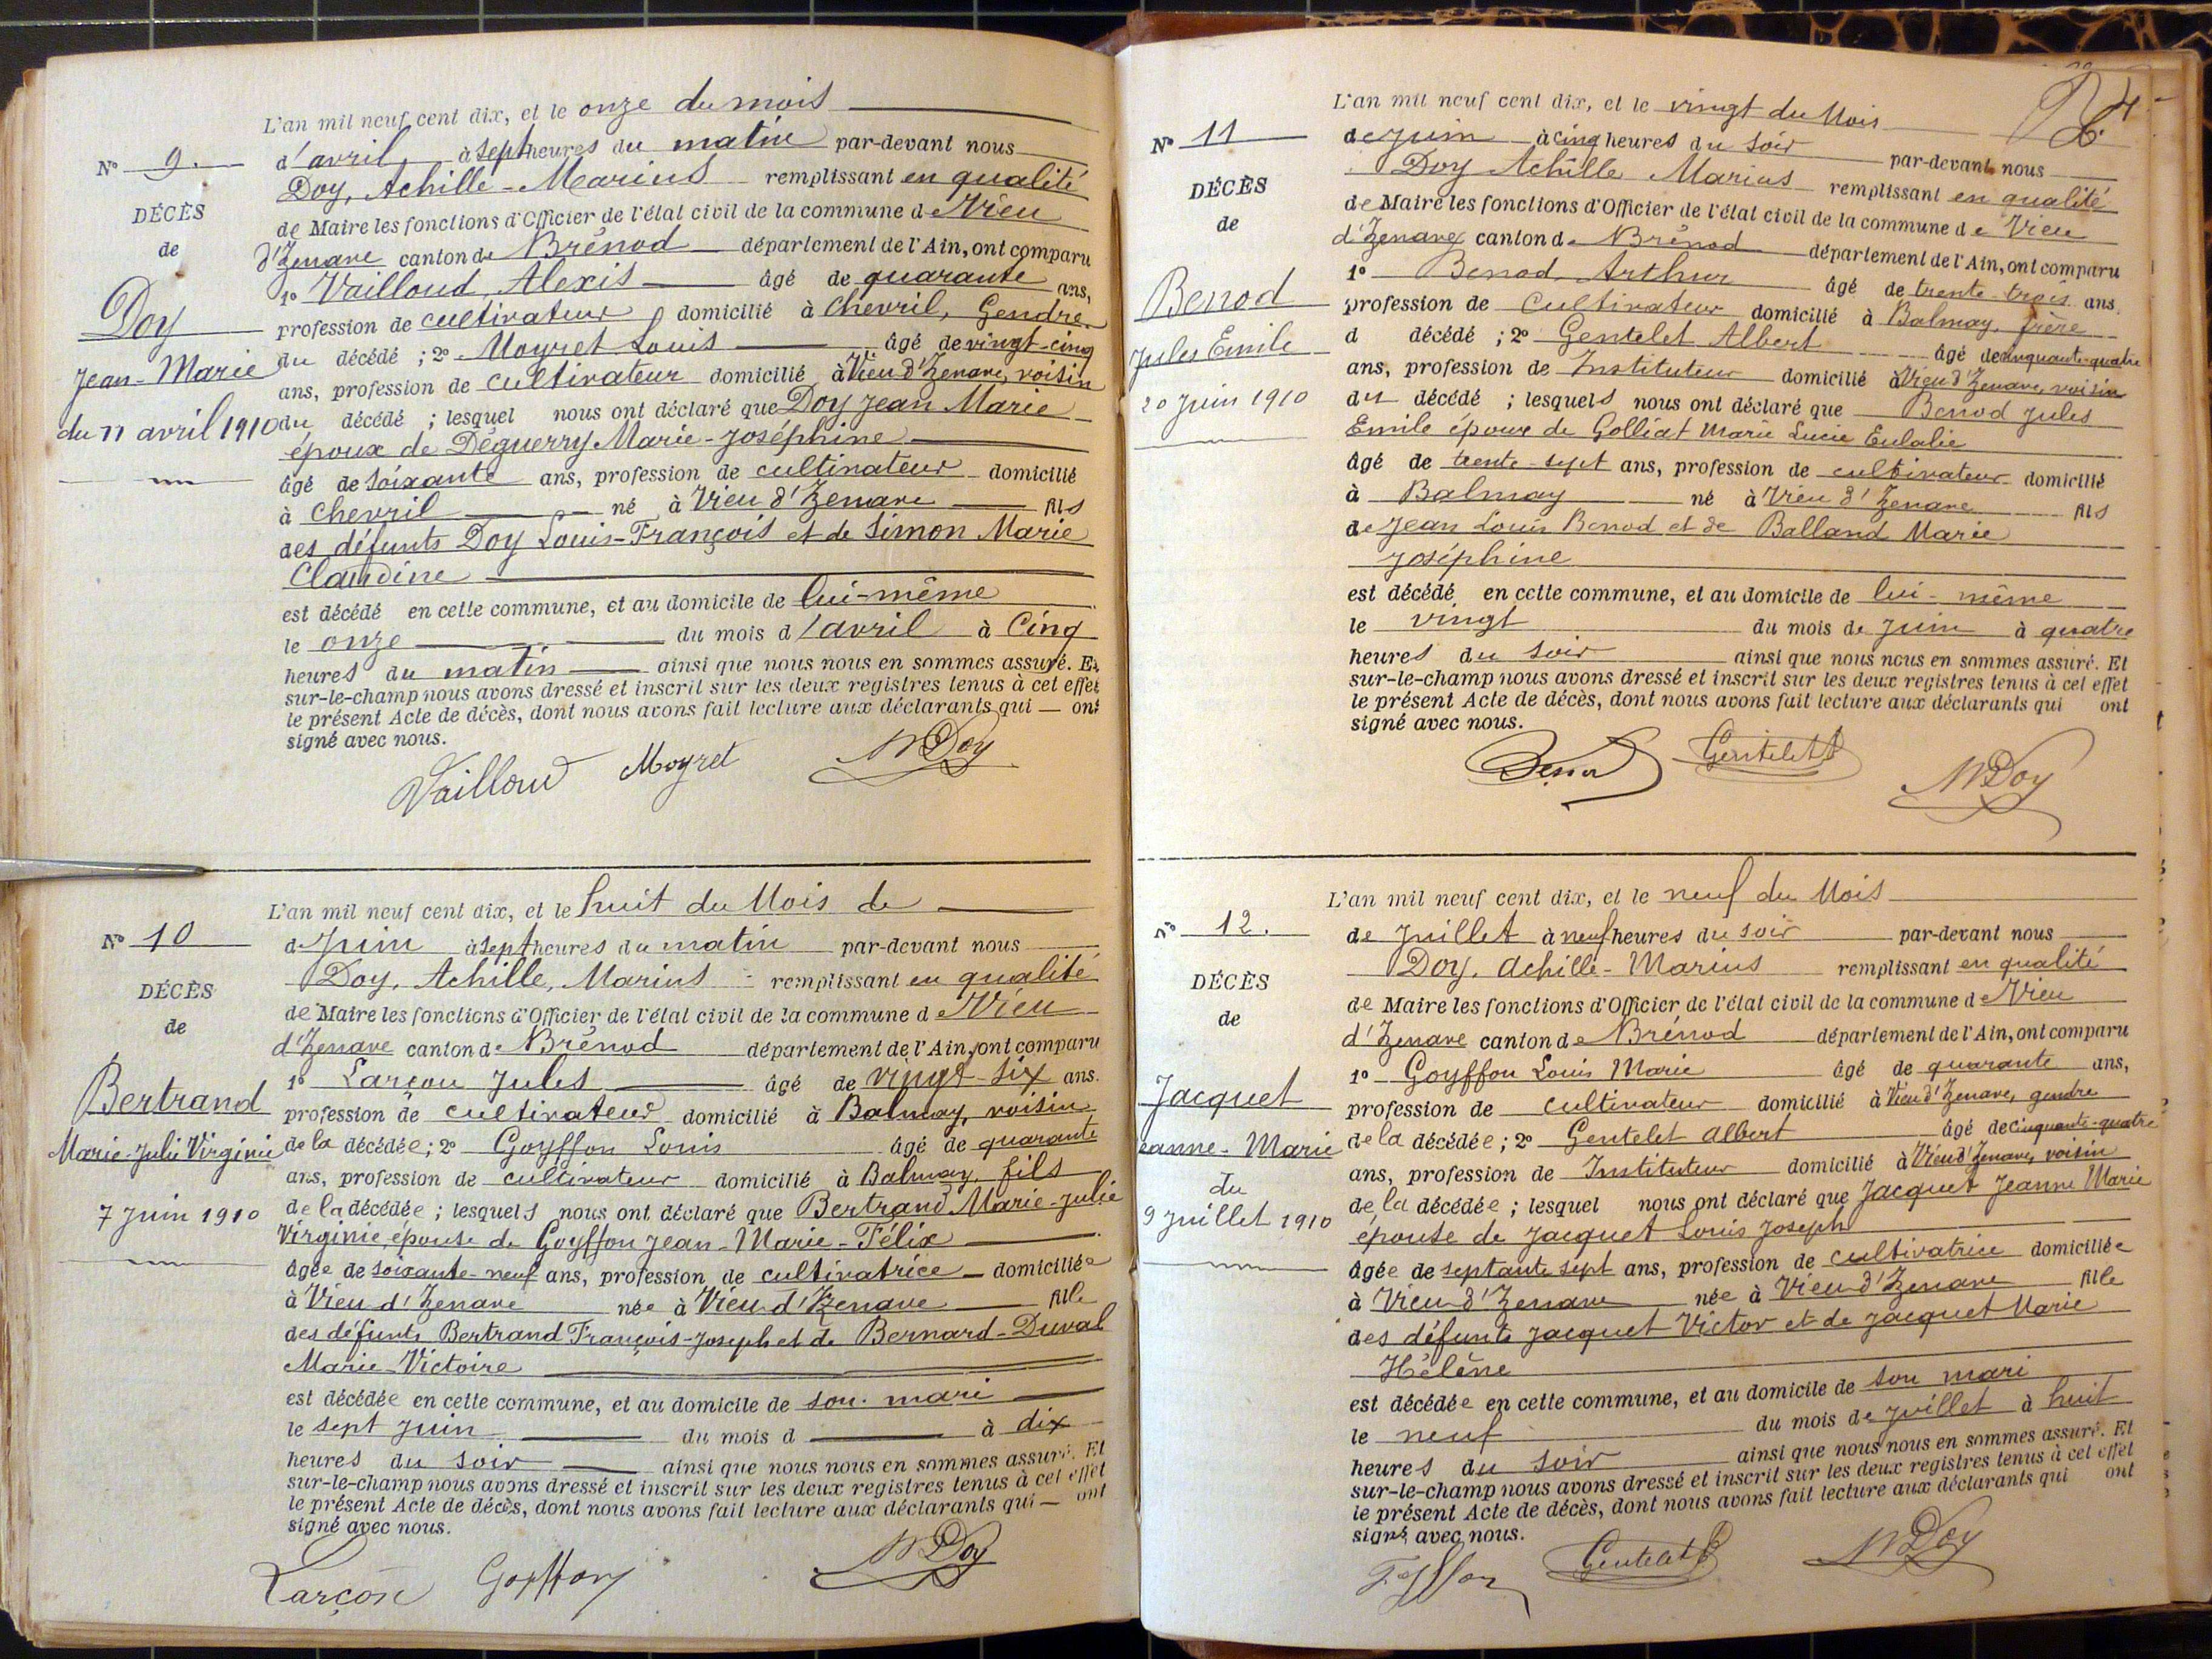 L'an mil neuf cent dix, et le onze du mois
N° 9.
d'avril, à sept heures du matin par-devant nous
Doy, Achille-Marius remplissant en qualité
DÉCÈS
de Maire les fonctions d'Officier de l'état civil de la commune de Vieu
de
d'Izenave canton de Brénod département de l'Ain, ont comparu
1° Vailloud, Alexis âgé de quarante ans,
Doy
profession de cultivateur domicilié à Chevril, Gendre
du décédé ; 2° Moyret Louis âgé de vingt-cinq
Jean-Marie
ans, profession de cultivateur domicilié à Vieu d'Izenave, voisin
du 11 avril 1910
du décédé ; lesquel nous ont déclaré que Doy Jean Marie
époux de Déguerry Marie-Joséphine
âgé de soixante ans, profession de cultivateur domicilié
à Chevril né à Vieu d'Izenave fils
des défunts Doy Louis-François et de Simon Marie
Claudine
est décédé en cette commune, et au domicile de lui-même
le onze du mois d'avril à Cinq
heures du matin ainsi que nous nous en sommes assuré. Et
sur-le-champ nous avons dressé et inscrit sur les deux registres tenus à cet effet
le présent Acte de décès, dont nous avons fait lecture aux déclarants qui — ont
signé avec nous.
Vailloud Moyret MDoy
L'an mil neuf cent dix, et le huit du Mois de
N° 10
de Juin à sept heures du matin par-devant nous
Doy, Achille, Marius remplissant en qualité
DÉCÈS
de Maire les fonctions d'Officier de l'état civil de la commune de Vieu
de
d'Izenave canton de Brénod département de l'Ain, ont comparu
1° Larçon Jules âgé de vingt-six ans.
Bertrand
profession de cultivateur domicilié à Balmay, voisin
Marie-Julie Virginie
de la décédée ; 2° Goyffon Louis âgé de quarante
ans, profession de cultivateur domicilié à Balmay, fils
7 Juin 1910
de la décédée ; lesquels nous ont déclaré que Bertrand Marie-Julie
Virginie, épouse de Goyffon Jean-Marie-Félix
âgée de soixante-neuf ans, profession de cultivatrice domiciliée
à Vieu d'Izenave née à Vieu d'Izenave fille
des défunts Bertrand François-Joseph et de Bernard-Duval
Marie-Victoire
est décédée en cette commune, et au domicile de son mari
le sept Juin du mois d à dix
heures du soir ainsi que nous nous en sommes assuré. Et
sur-le-champ nous avons dressé et inscrit sur les deux registres tenus à cet effet
le présent Acte de décès, dont nous avons fait lecture aux déclarants qui — ont
signé avec nous.
Larçon Goyffon MDoy
L'an mil neuf cent dix, et le vingt du Mois
N° 11
de Juin à cinq heures du soir par-devant nous
Doy Achille Marius remplissant en qualité
DÉCÈS
de Maire les fonctions d'Officier de l'état civil de la commune de Vieu
de
d'Izenave canton de Brénod département de l'Ain, ont comparu
1° Benod Arthur âgé de trente-trois ans.
Benod
profession de Cultivateur domicilié à Balmay, frère
Jules Emile
d décédé ; 2° Gentelet Albert âgé de cinquante-quatre
ans, profession de Instituteur domicilié à Vieu d'Izenave, voisin
20 Juin 1910
du décédé ; lesquels nous ont déclaré que Benod Jules
Emile époux de Golliat Marie Lucie Eulalie
âgé de trente-sept ans, profession de cultivateur domicilié
à Balmay né à Vieu d'Izenave fils
de Jean Louis Benod et de Balland Marie
Joséphine
est décédé en cette commune, et au domicile de lui-même
le vingt du mois de Juin à quatre
heures du soir ainsi que nous nous en sommes assuré. Et
sur-le-champ nous avons dressé et inscrit sur les deux registres tenus à cet effet
le présent Acte de décès, dont nous avons fait lecture aux déclarants qui ont
signé avec nous.
Benod Gentelet MDoy
L'an mil neuf cent dix, et le neuf du Mois
N° 12.
de Juillet à neuf heures du soir par-devant nous
Doy, Achille-Marius remplissant en qualité
DÉCÈS
de Maire les fonctions d'Officier de l'état civil de la commune de Vieu
de
d'Izenave canton de Brénod département de l'Ain, ont comparu
1° Goyffon Louis Marie âgé de quarante ans,
Jacquet
profession de cultivateur domicilié à Vieu d'Izenave, gendre
Jeanne-Marie
de la décédée ; 2° Gentelet Albert âgé de cinquante-quatre
ans, profession de Instituteur domicilié à Vieu d'Izenave, voisin
du
de la décédée ; lesquel nous ont déclaré que Jacquet Jeanne Marie
9 Juillet 1910
épouse de Jacquet Louis Joseph
âgée de septante sept ans, profession de cultivatrice domiciliée
à Vieu d'Izenave née à Vieu d'Izenave fille
des défunts Jacquet Victor et de Jacquet Marie
Hélène
est décédée en cette commune, et au domicile de son mari
le neuf du mois de Juillet à huit
heures du soir ainsi que nous nous en sommes assuré. Et
sur-le-champ nous avons dressé et inscrit sur les deux registres tenus à cet effet
le présent Acte de décès, dont nous avons fait lecture aux déclarants qui ont
signé avec nous.
Gentelet MDoy